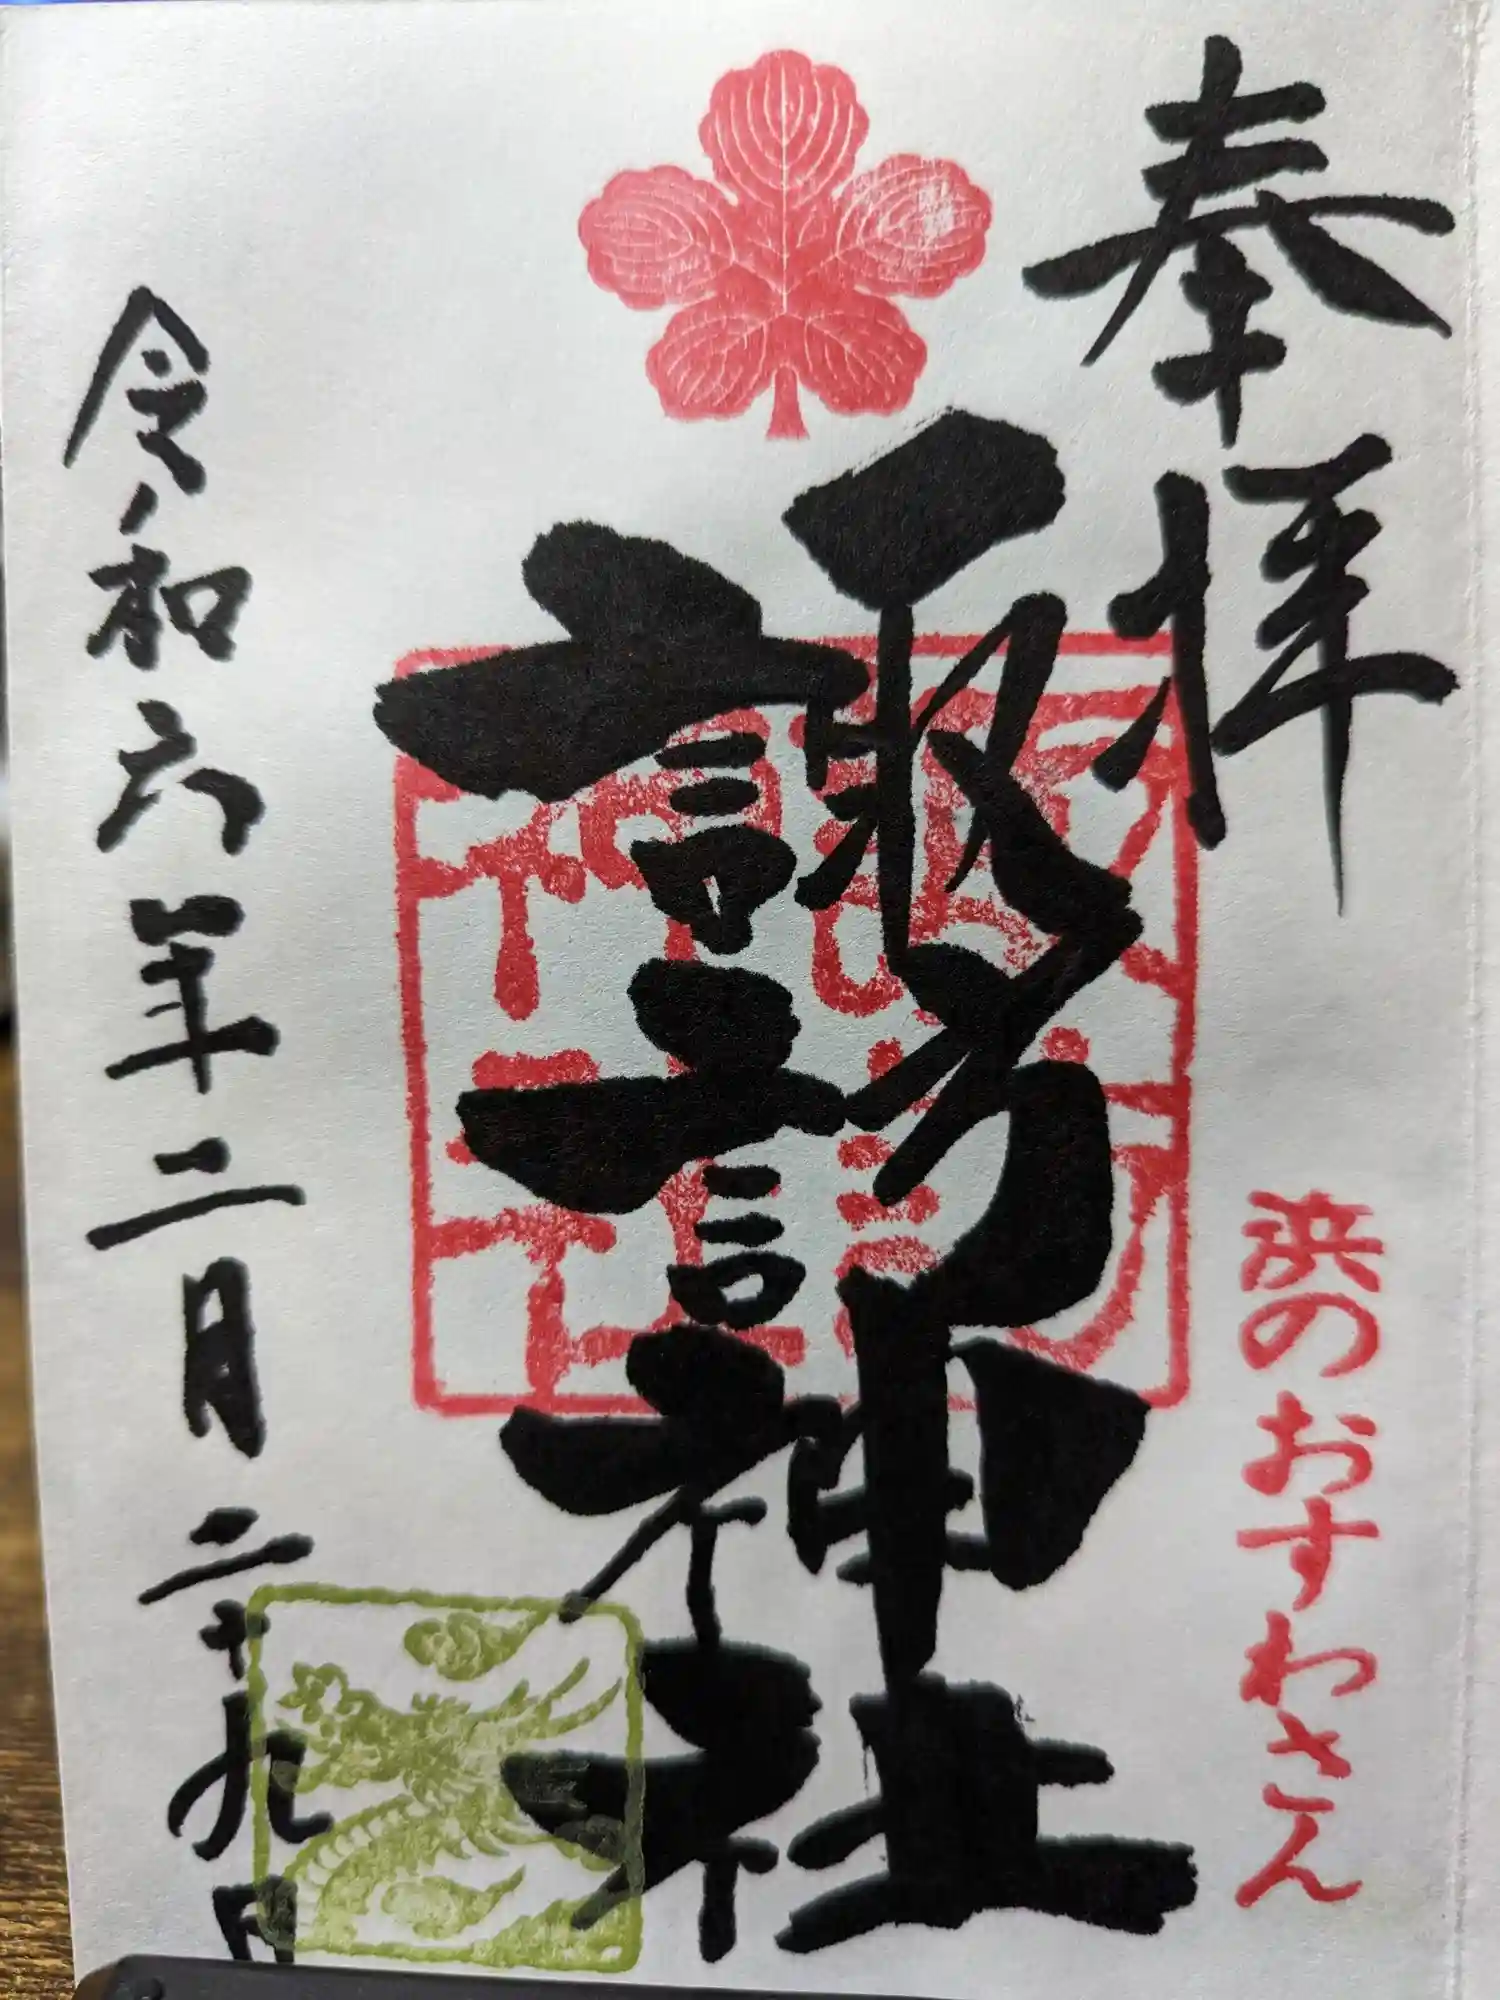 奉拝
浜のおすわさん
諏訪神社
令和六年二月二十九日